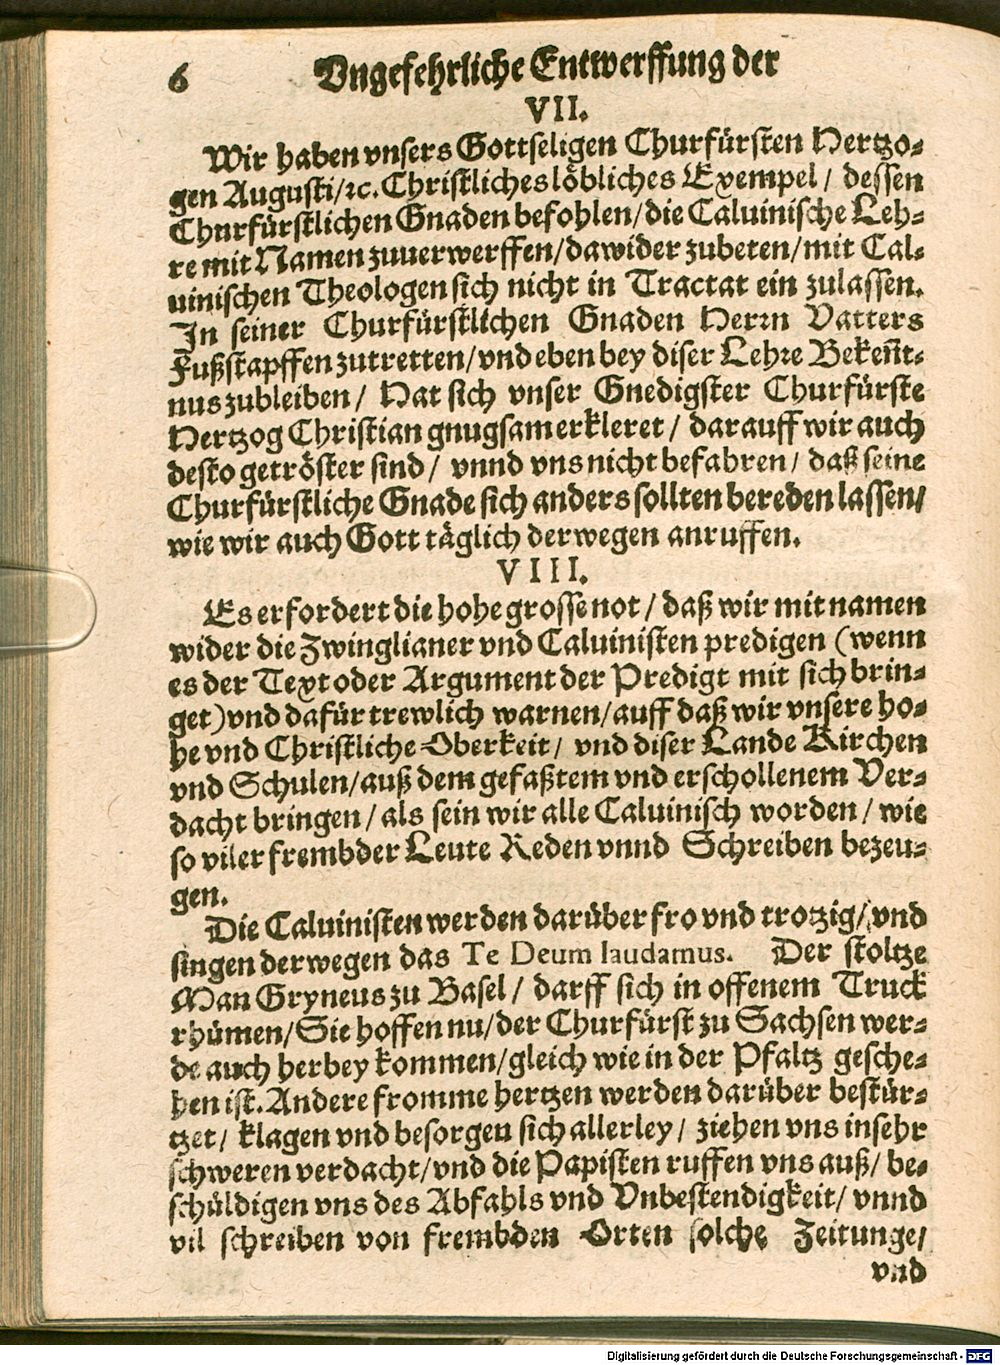 6 Vngefehrliche Entwerffung der
VII.
Wir haben vnsers Gottseligen Churfürsten Hertzo-
gen Augusti/ꝛc. Christliches löbliches Exempel / dessen
Churfürstlichen Gnaden befohlen/die Caluinische Leh-
re mit Namen zuuerwerffen/dawider zubeten/mit Cal-
uinischen Theologen sich nicht in Tractat ein zulassen.
In seiner Churfürstlichen Gnaden Herrn Vatters
Fußstapffen zutretten/vnd eben bey diser Lehre Bekeñt-
nus zubleiben / Hat sich vnser Gnedigster Churfürste
Hertzog Christian gnugsam erkleret / darauff wir auch
desto getröster sind / vnnd vns nicht befahren / daß seine
Churfürstliche Gnade sich anders sollten bereden lassen/
wie wir auch Gott täglich derwegen anruffen.
VIII.
Es erfordert die hohe grosse not / daß wir mit namen
wider die Zwinglianer vnd Caluinisten predigen (wenn
es der Text oder Argument der Predigt mit sich brin-
get) vnd dafür trewlich warnen/auff daß wir vnsere ho-
he vnd Christliche Oberkeit / vnd diser Lande Kirchen
vnd Schulen/auß dem gefaßtem vnd erschollenem Ver-
dacht bringen / als sein wir alle Caluinisch worden / wie
so viler frembder Leute Reden vnnd Schreiben bezeu-
gen.
Die Caluinisten werden darüber fro vnd trotzig/ vnd
singen derwegen das Te Deum laudamus. Der stoltze
Man Gryneus zu Basel / darff sich in offenem Truck
rhümen/Sie hoffen nu/der Churfürst zu Sachsen wer-
de auch herbey kommen/gleich wie in der Pfaltz gesche-
hen ist. Andere fromme hertzen werden darüber bestür-
tzet / klagen vnd besorgen sich allerley / ziehen vns in sehr
schweren verdacht/vnd die Papisten ruffen vns auß/ be-
schüldigen vns des Abfahls vnd Vnbestendigkeit/ vnnd
vil schreiben von frembden Orten solche Zeitunge/
vnd
Digitalisierung gefördert durch die Deutsche Forschungsgemeinschaft - DFG